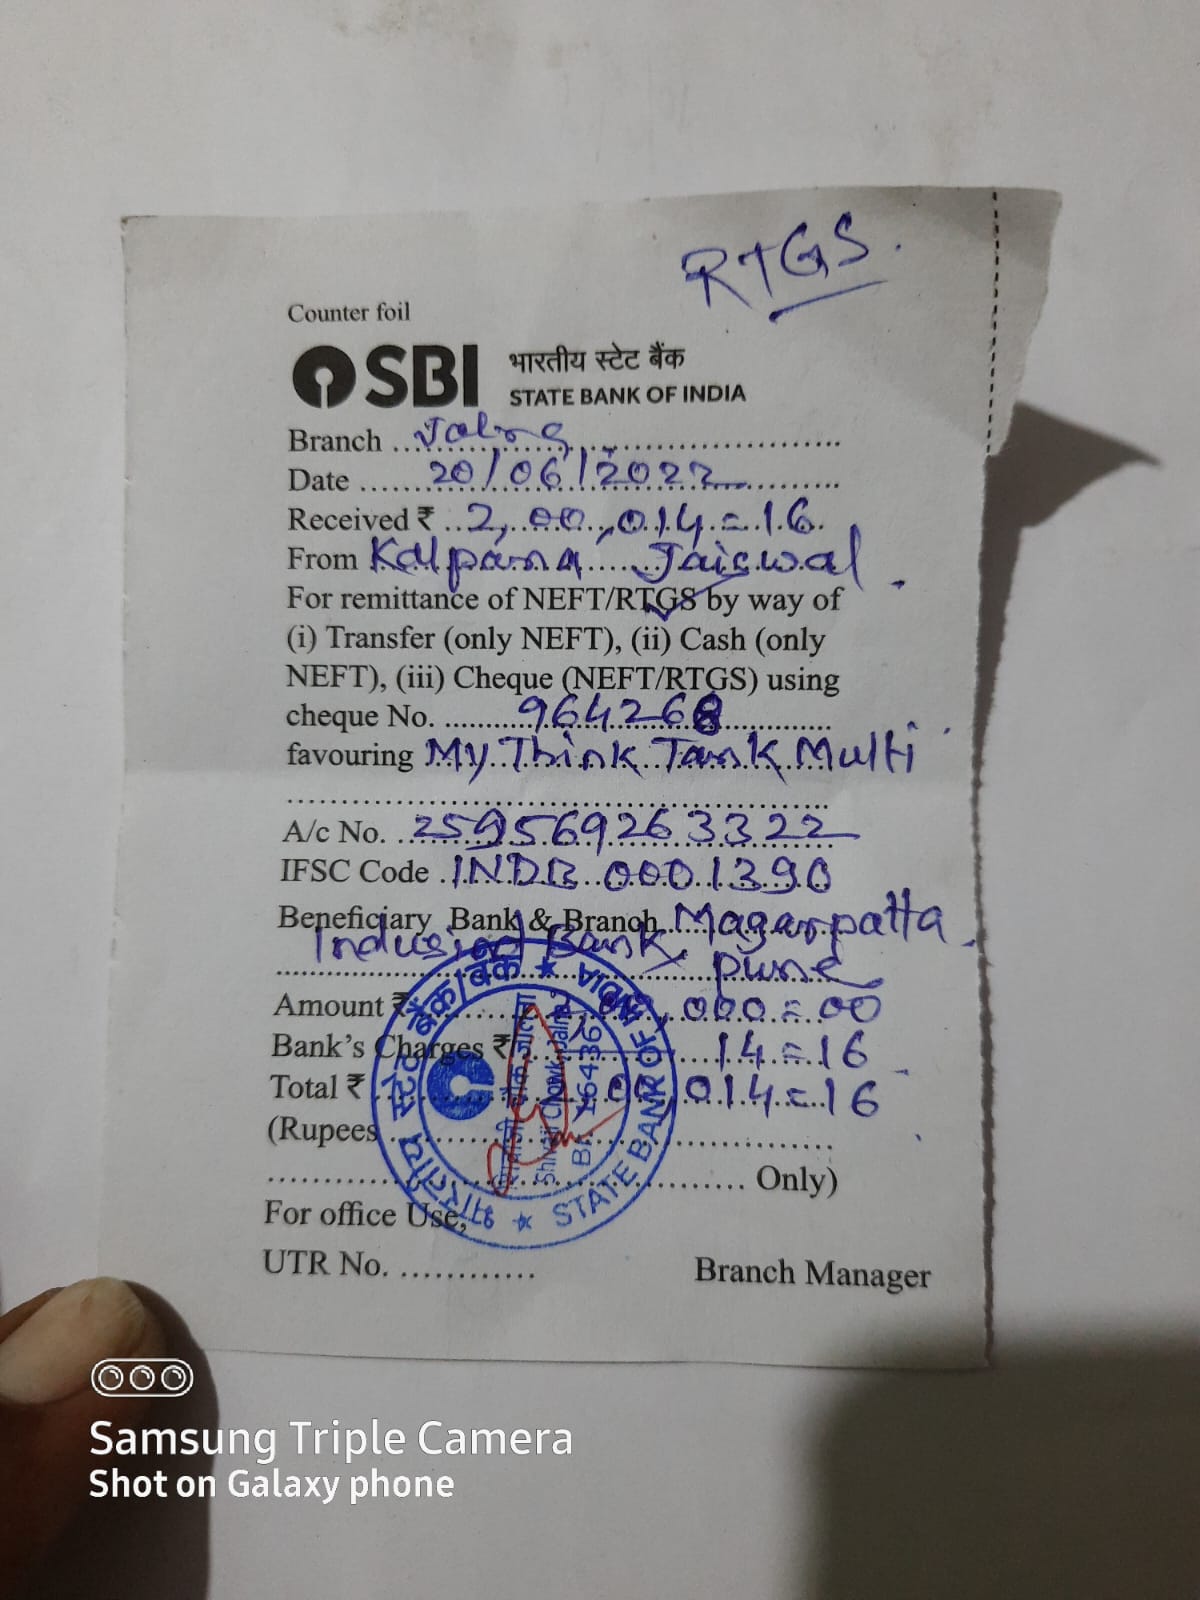 RTGS.
Counter foil
SBI भारतीय स्टेट बैंक
STATE BANK OF INDIA
Branch .. Jalna
Date ...... 20/06/2022
Received ₹ .. 2,00,014=16
From Kalpana Jaiswal
For remittance of NEFT/RTGS by way of
(i) Transfer (only NEFT), (ii) Cash (only
NEFT), (iii) Cheque (NEFT/RTGS) using
cheque No. ........ 964268
favouring My Think Tank Multi
A/c No. .. 259569263322
IFSC Code . INDB 0001390
Beneficiary Bank & Branch Magarpatta
Indusind Bank, pune
Amount ₹ ,000=00
Bank's Charges ₹ 14=16
Total ₹ 00,014=16
(Rupees
Only)
For office Use,
UTR No. ............ Branch Manager
भारतीय स्टेट बैंक/बैंक
STATE BANK OF INDIA
Shivaji Chowk, Jalna
Br. 16436
Samsung Triple Camera
Shot on Galaxy phone